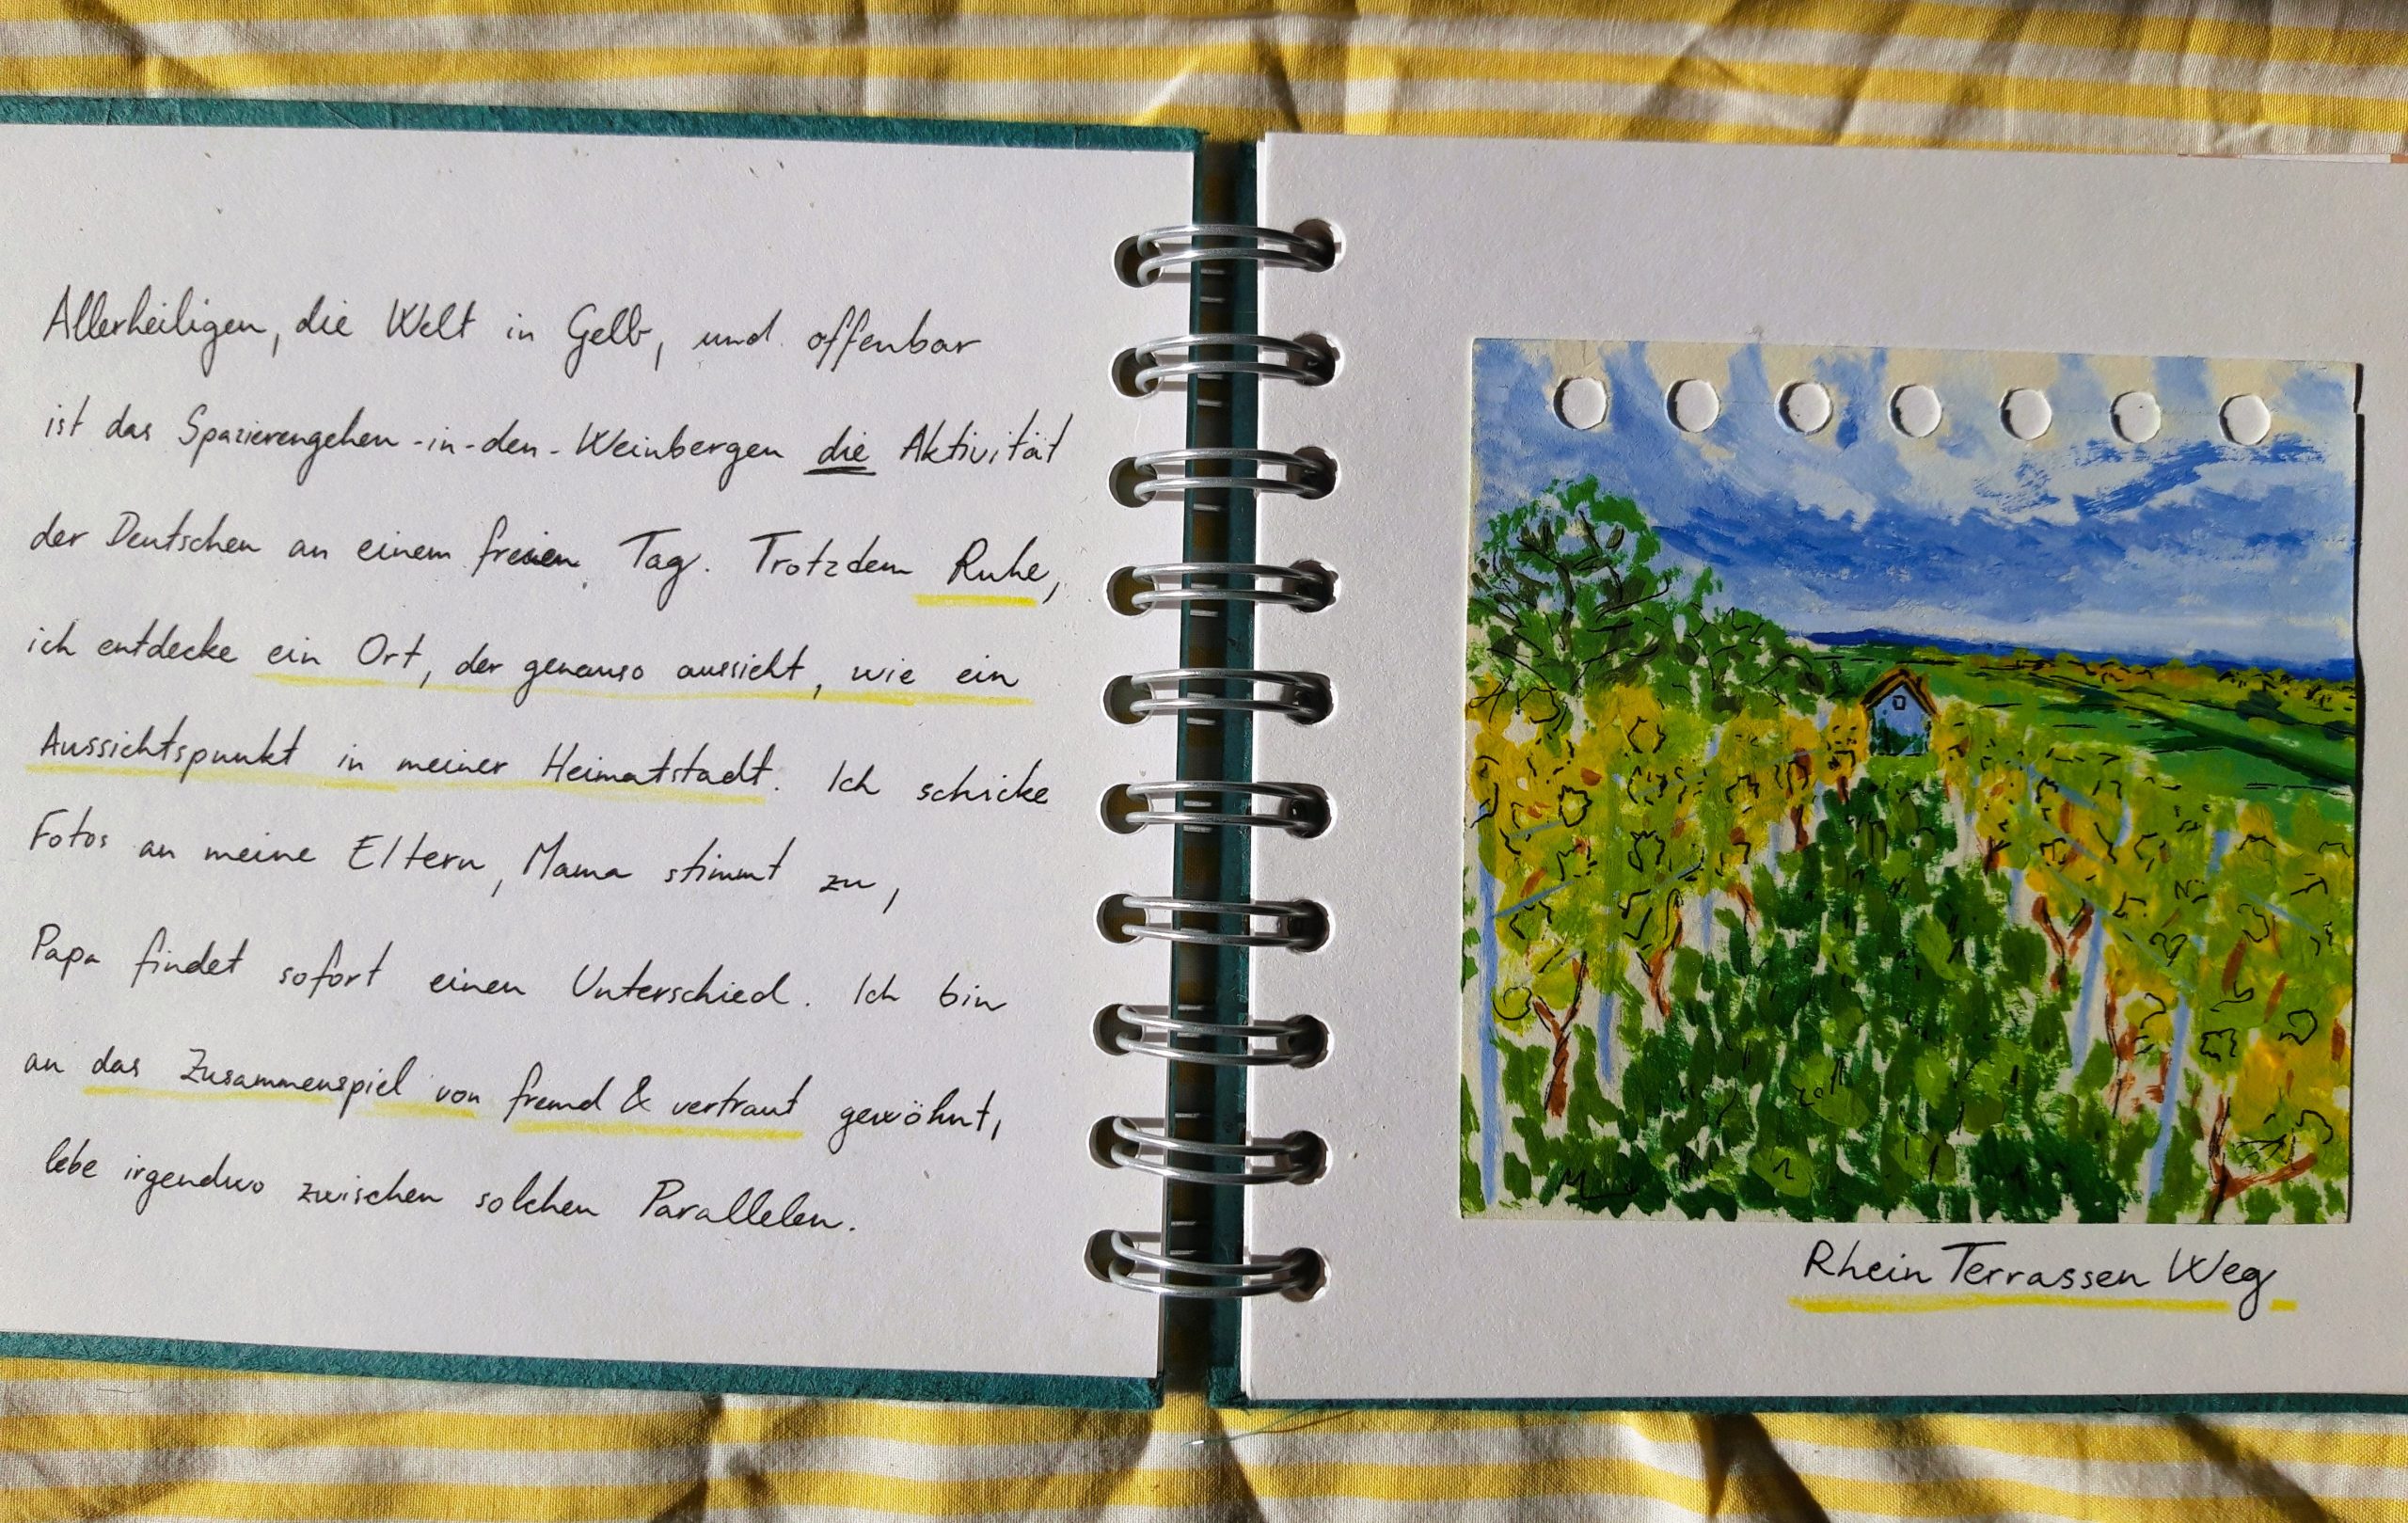 Allerheiligen, die Welt in Gelb, und offenbar
ist das Spazierengehen-in-den-Weinbergen die Aktivität
der Deutschen an einem freien Tag. Trotzdem Ruhe,
ich entdecke ein Ort, der genauso aussieht, wie ein
Aussichtspunkt in meiner Heimatstadt. Ich schicke
Fotos an meine Eltern, Mama stimmt zu,
Papa findet sofort einen Unterschied. Ich bin
an das Zusammenspiel von fremd & vertraut gewöhnt,
lebe irgendwo zwischen solchen Parallelen.
Rhein Terrassen Weg